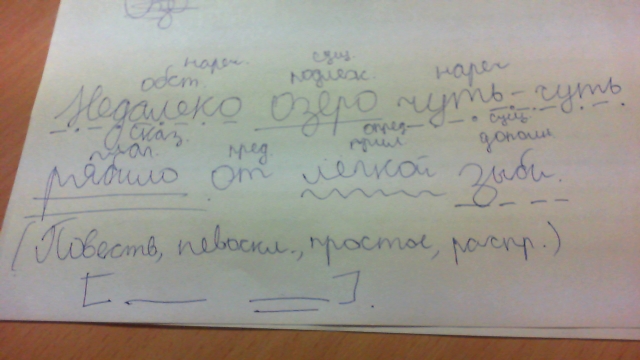 нареч. сущ. нареч
обст. подлеж.
Недалеко озеро чуть-чуть
сказ. опред. сущ.
глаг. пред. прил дополн
рябило от лёгкой зыби.
(Повеств, невоскл., простое, распр.)
[ ].